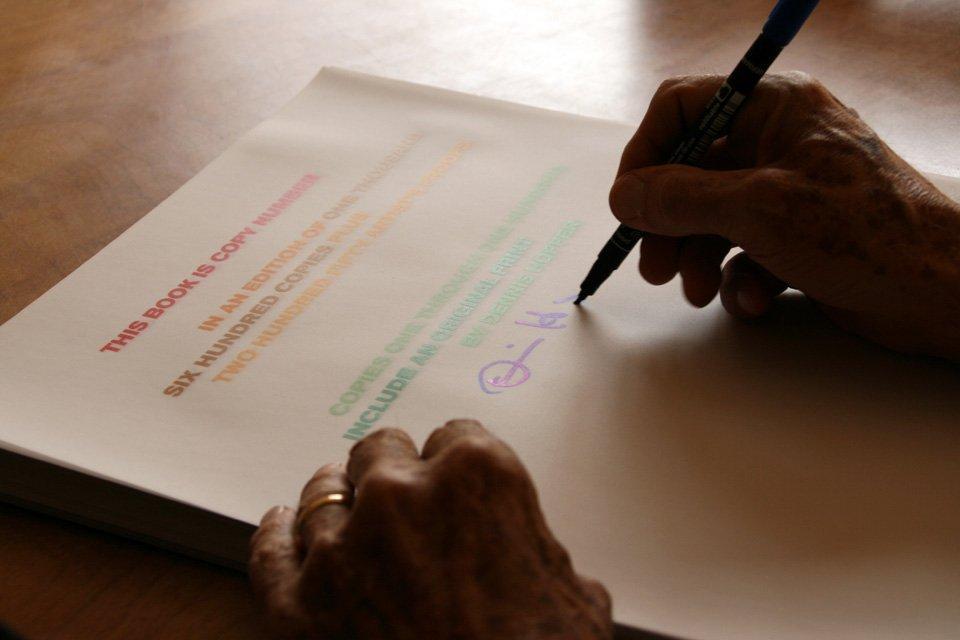 THIS BOOK IS COPY NUMBER
IN AN EDITION OF ONE THOUSAND
SIX HUNDRED COPIES PLUS
TWO HUNDRED FIFTY ARTIST'S PROOFS
COPIES ONE THROUGH ONE HUNDRED
INCLUDE AN ORIGINAL PRINT
BY DENNIS HOPPER